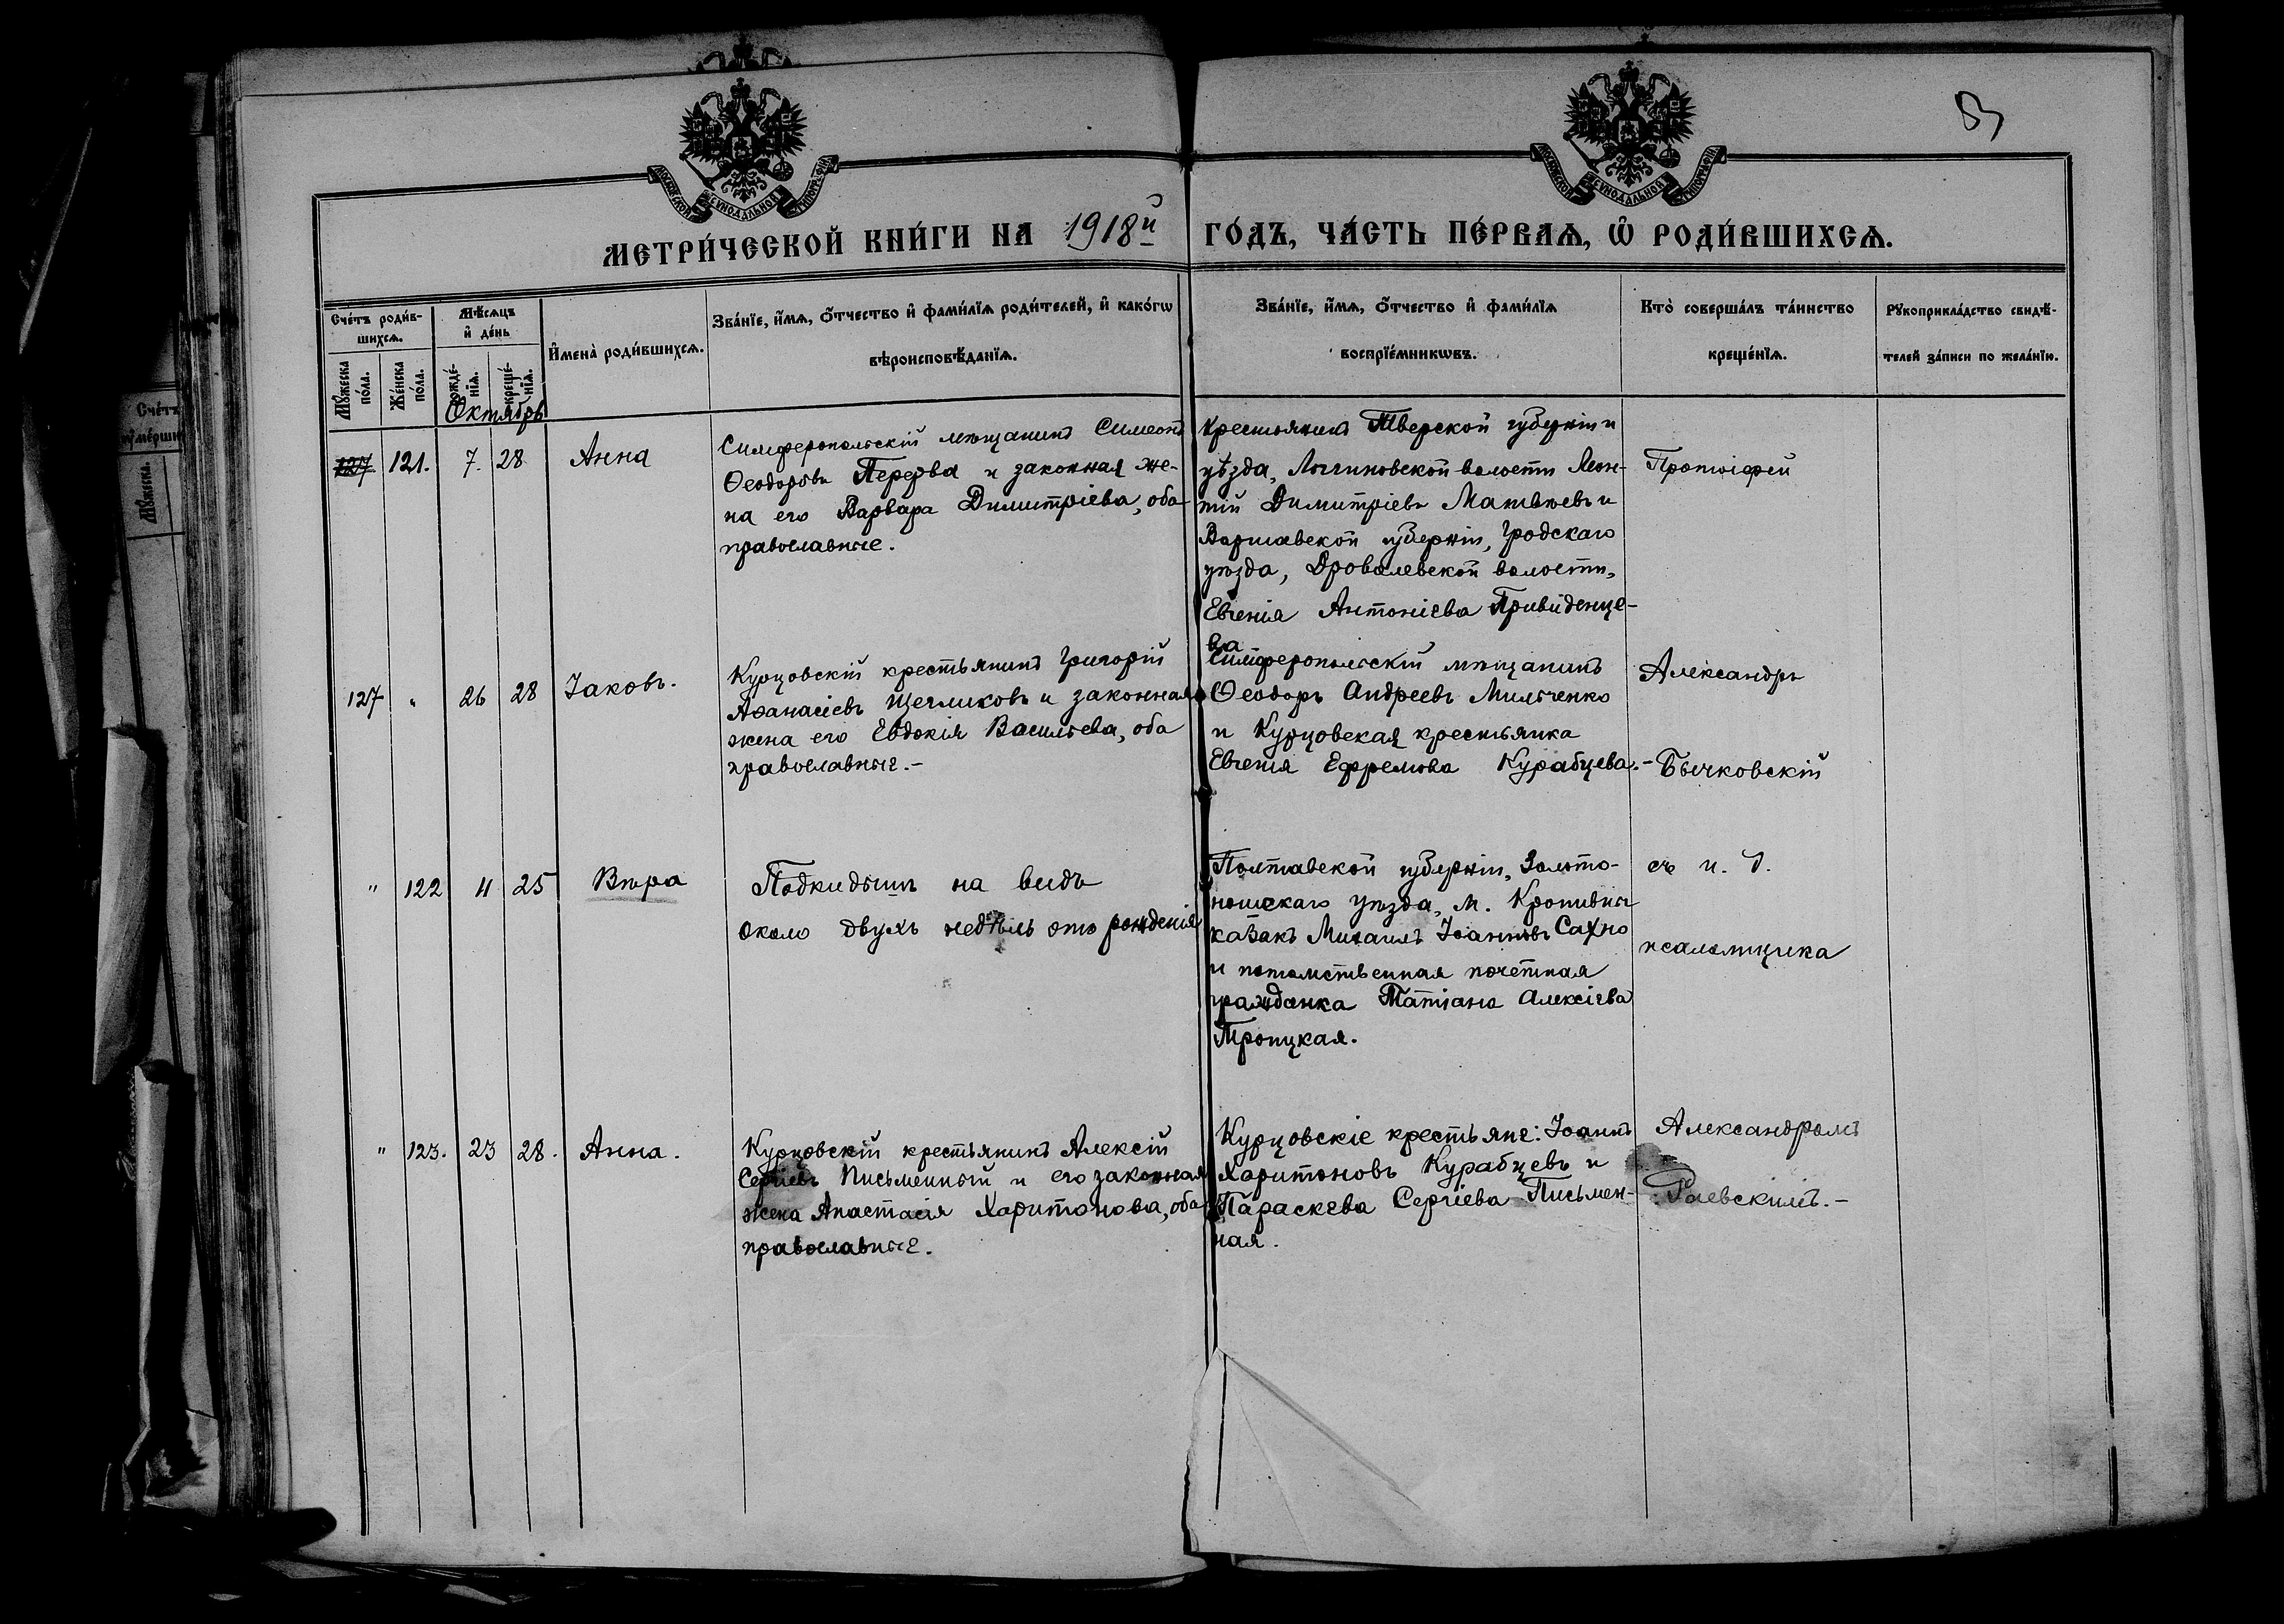 83
МОСКОВСКОЙ СѴНОДАЛЬНОЙ ТИПОГРАФІИ
МОСКОВСКОЙ СѴНОДАЛЬНОЙ ТИПОГРАФІИ
МЕТРИ́ЧЕСКОЙ КНИ́ГИ НА 1918й ГО́ДЪ, ЧА́СТЬ ПЕ́РВАѦ, Ѿ РОДИ́ВШИХСѦ.
Сче́тъ роди́в-
шихсѧ.
Мꙋ́жеска по́ла.
Же́нска по́ла.
Мѣ́сѧцъ
и҆ де́нь
рожде́-
нїѧ.
креще́-
нїѧ.
И҆мена̀ роди́вшихсѧ.
Зва́нїе, и҆́мѧ, ѻ҆́тчество и҆ фами́лїѧ роди́телей, и҆ како́гѡ
вѣроисповѣ́данїѧ.
Зва́нїе, и҆́мѧ, ѻ҆́тчество и҆ фами́лїѧ
воспрїе́мникѡвъ.
Кто̀ соверша́лъ та́инство
креще́нїѧ.
Рꙋкоприкла́дство свидѣ́-
телей за́писи по жела́нїю.
Октябрь
127 121. 7. 28 Анна
Симферопольскій мѣщанинъ Симеонъ
Ѳеодоровъ Перерва и законная же-
на его Варвара Димитріева, оба
православные.
Крестьянинъ Тверской губерніи и
уѣзда, Логгиновской волости Леон-
тій Димитріевъ Матвѣевъ и
Варшавской губерніи, Гродскаго
уѣзда, Дровалевской волости,
Евгенія Антоніева Привиденце-
ва
Протоіерей
127 " 26 28 Іаковъ.
Курцовскій крестьянинъ Григорій
Аѳанасіевъ Щегликовъ и законная
жена его Евдокія Васильева, оба
православные.-
Симферопольскій мѣщанинъ
Ѳеодоръ Андреевъ Мильченко
и Курцовская крестьянка
Евгенія Ефремова Курабцева.-
Александръ
Бычковскій
" 122 11 25 Вѣра
Подкидышъ на видъ
около двухъ недѣль отъ рожденія
Полтавской губерніи, Золото-
ношскаго уѣзда, м. Кропивны
казакъ Михаилъ Іоанновъ Сахно
и потомственная почетная
гражданка Татіана Алексіева
Троицкая.
съ и. д.
псаломщика
" 123. 23 28. Анна.
Курцовскій крестьянинъ Алексій
Сергіевъ Письменный и его законная
жена Анастасія Харитонова, оба
православные.
Курцовскіе крестьяне: Іоаннъ
Харитоновъ Курабцевъ и
Параскева Сергіева Письмен-
ная.
Александромъ
Раевскимъ.-